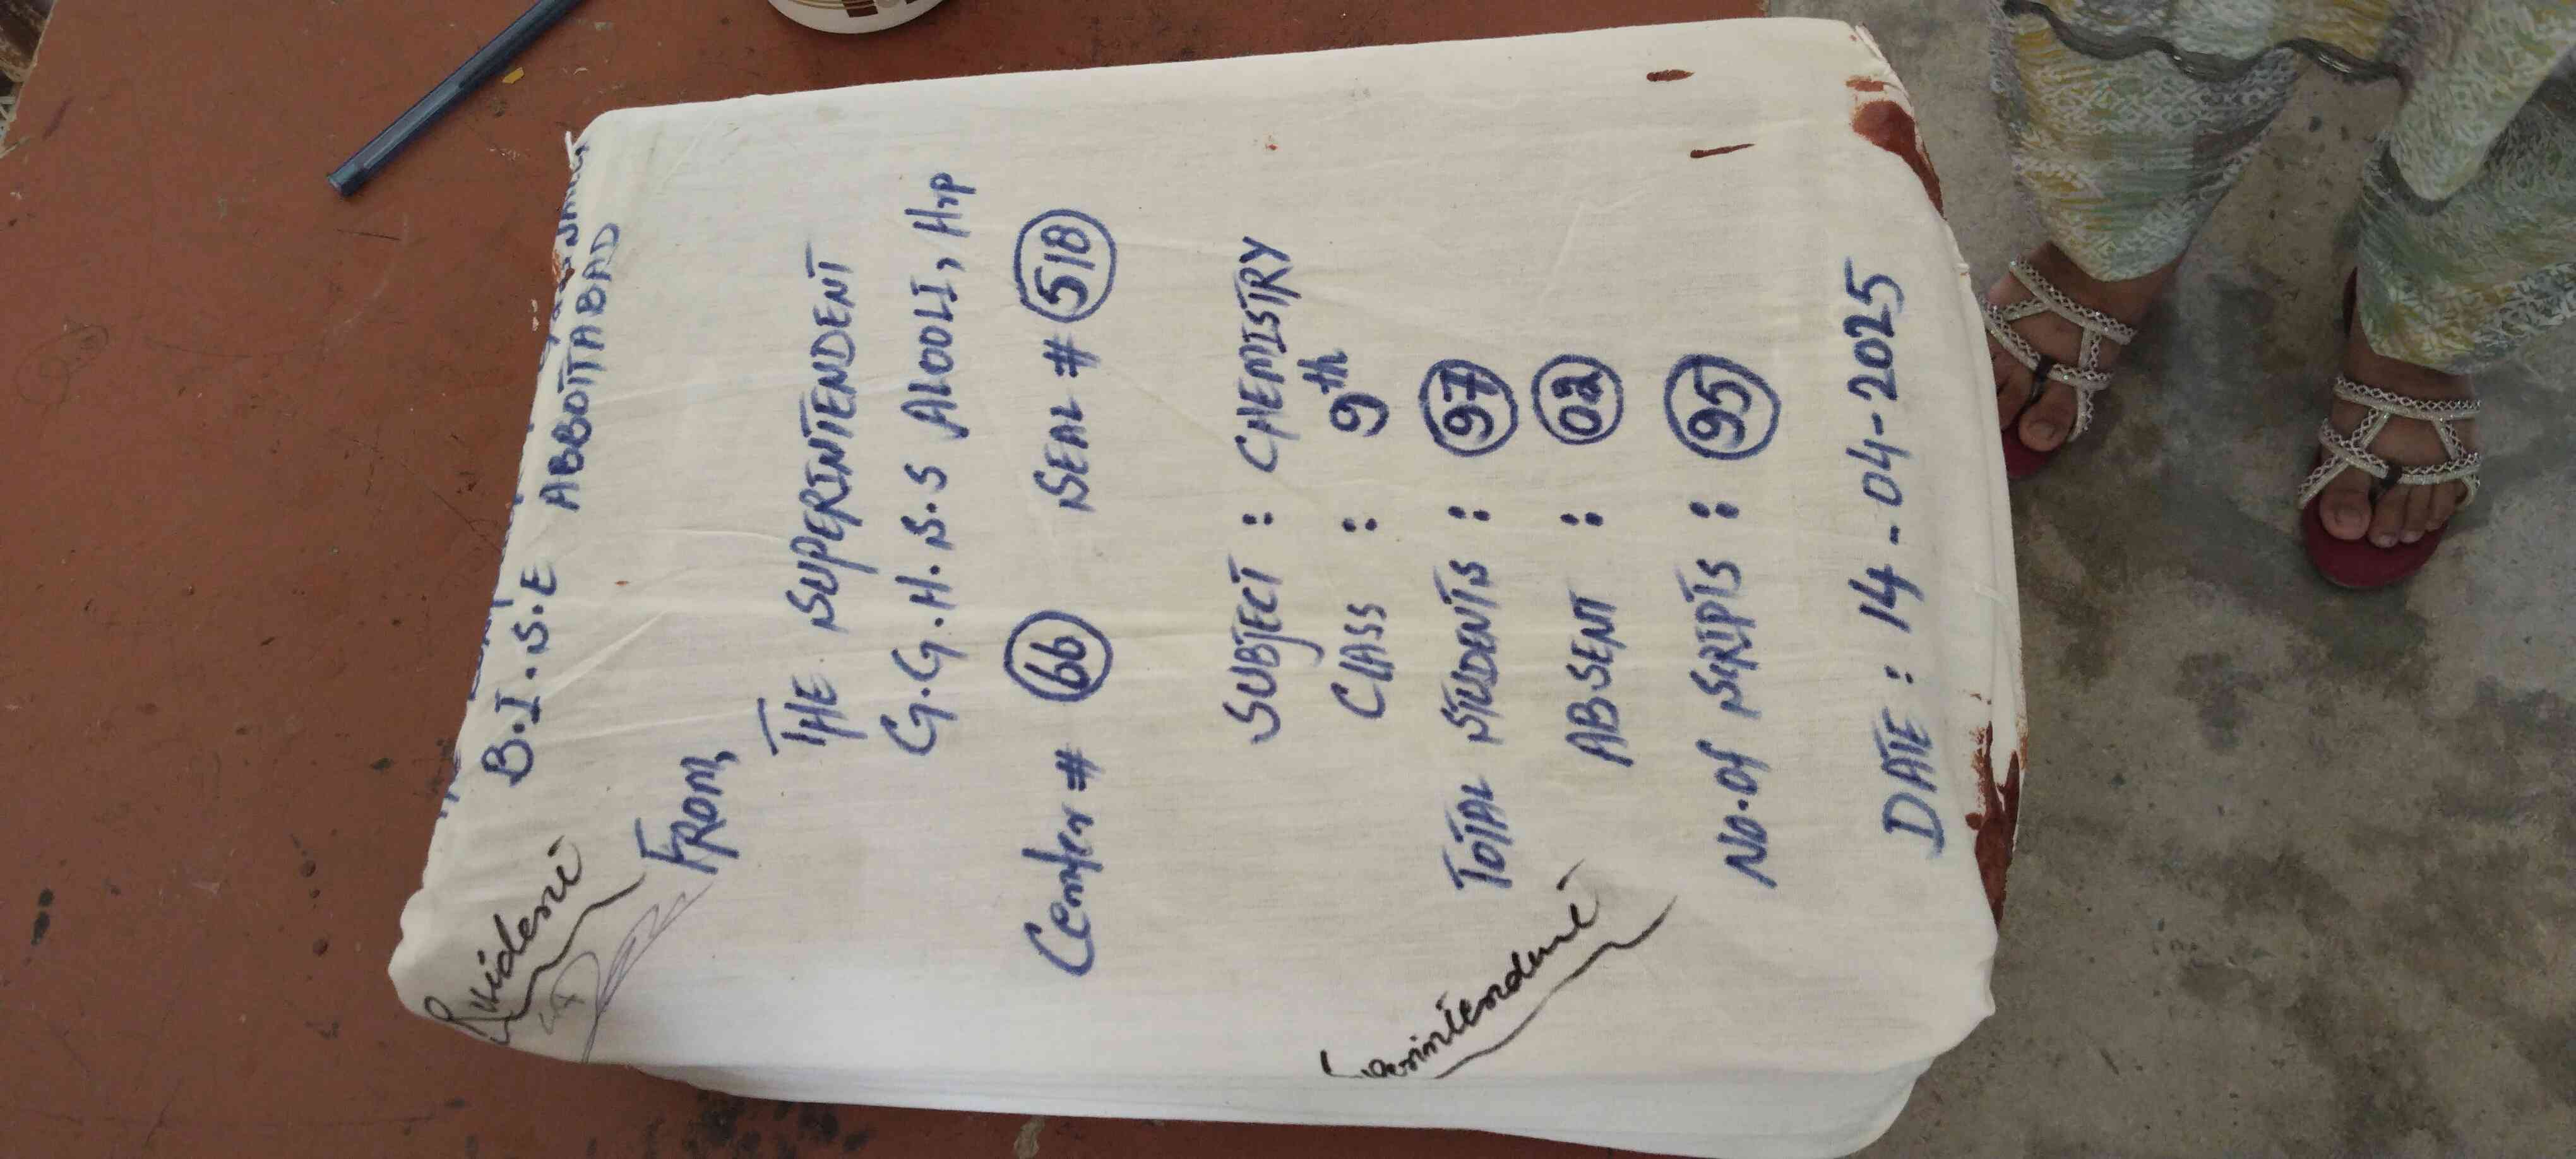 B.I.S.E ABBOTTABAD
FROM,
THE SUPERINTENDENT
G.G.H.S.S ALOOLI, Hrp
Center # 66 SEAL # 518
SUBJECT : CHEMISTRY
CLASS : 9th
TOTAL STUDENTS : 97
ABSENT : 02
NO. OF SCRIPTS : 95
DATE : 14-04-2025